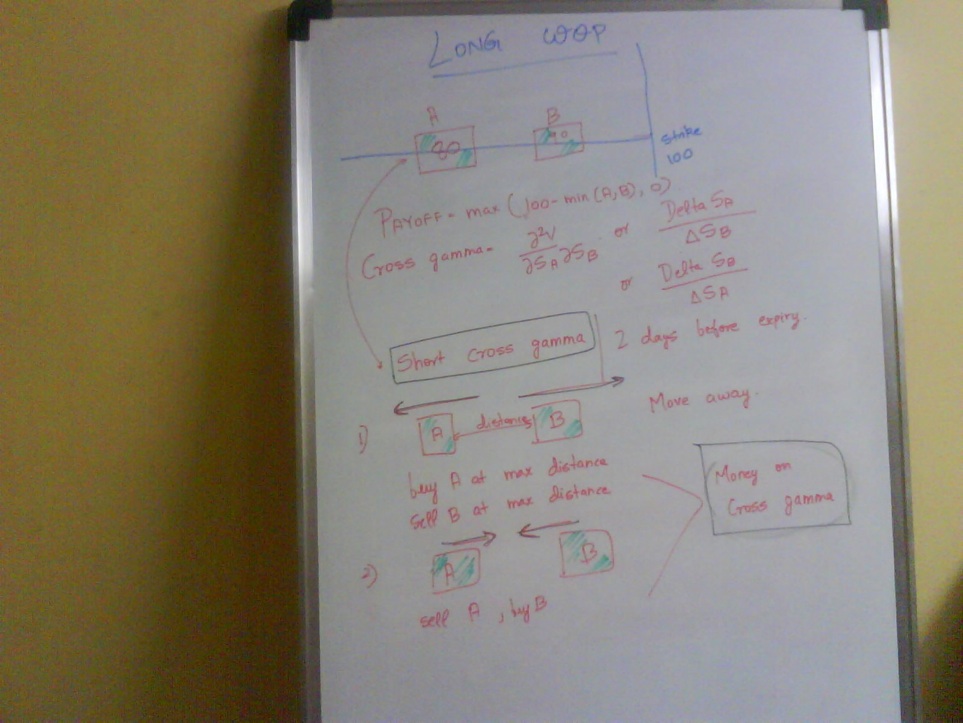 LONG WOP
A B
80 90
Strike
100
PAYOFF = max (100 - min (A,B), 0)
Cross gamma = ∂²V / ∂S_A ∂S_B or Delta S_A / ΔS_B
or Delta S_B / ΔS_A
Short cross gamma 2 days before expiry.
Move away.
1) A distance B
buy A at max distance
Sell B at max distance
Money on
Cross gamma
2) A B
sell A, buy B